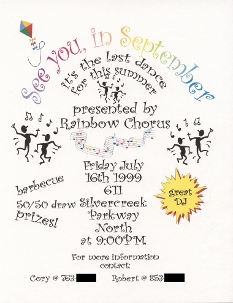 See you in September
it's the last dance
for this summer
presented by
Rainbow Chorus
Friday July
16th 1999
611
Silvercreek
Parkway
North
at 9:00PM
barbecue
50/50 draw
prizes!
great
DJ
For more information
contact:
Cory @ 763
Robert @ 853